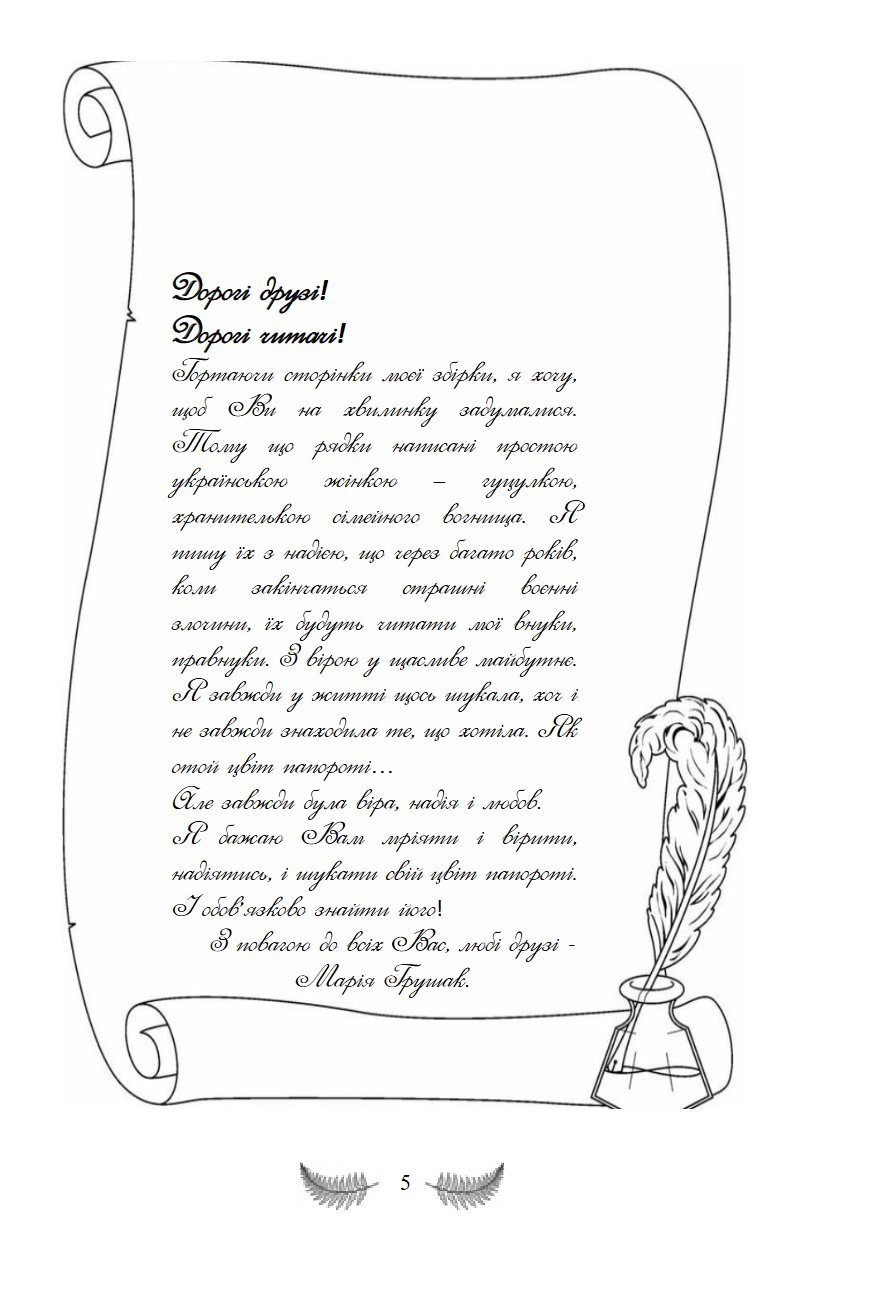 Дорогі друзі!
Дорогі читачі!
Гортаючи сторінки моєї збірки, я хочу,
щоб Ви на хвилинку задумалися.
Тому що рядки написані простою
українською жінкою – гуцулкою,
хранителькою сімейного вогнища. Я
пишу їх з надією, що через багато років,
коли закінчаться страшні воєнні
злочини, їх будуть читати мої внуки,
правнуки. З вірою у щасливе майбутнє.
Я завжди у житті щось шукала, хоч і
не завжди знаходила те, що хотіла. Як
отой цвіт папороті...
Але завжди була віра, надія і любов.
Я бажаю Вам мріяти і вірити,
надіятись, і шукати свій цвіт папороті.
І обов'язково знайти його!
З повагою до всіх Вас, любі друзі -
Марія Грушак.
5